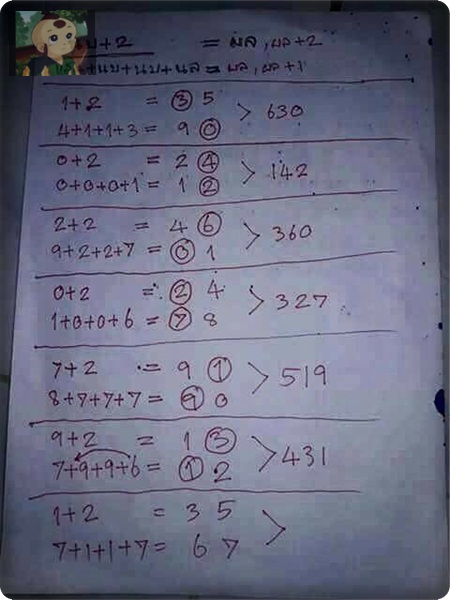 บ+2 = ผล, ผล+2
+นบ+นบ+นล = ผล, ผล+1
1+2 = 3 5
4+1+1+3 = 9 0 > 630
0+2 = 2 4
0+0+0+1 = 1 2 > 142
2+2 = 4 6
9+2+2+7 = 0 1 > 360
0+2 = 2 4
1+0+0+6 = 7 8 > 327
7+2 = 9 1
8+7+7+7 = 9 0 > 519
9+2 = 1 3
7+9+9+6 = 1 2 > 431
1+2 = 3 5
7+1+1+7 = 6 7 >